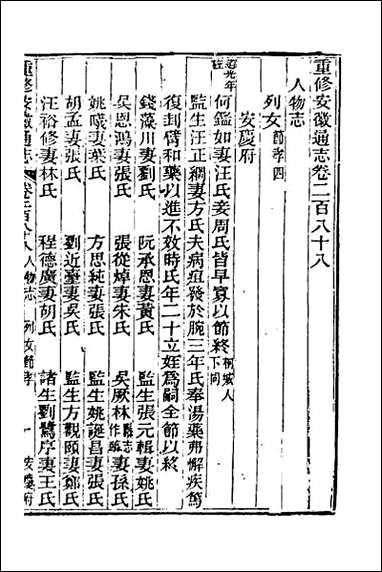 重修安徽通志卷二百八十八
人物志
列女節孝四
安慶府
何鑑如妻汪氏妾周氏皆早寡以節終桐城人下同
監生汪正綱妻方氏夫病疽發於腕三年氏奉湯藥弗解疾篤
復刲臂和藥以進不效時氏年二十立姪爲嗣全節以終
錢藻川妻劉氏 阮承恩妻黃氏 監生張元輯妻姚氏
吳恩鴻妻張氏 張從焯妻朱氏 吳厥林縣志作臨妻孫氏
姚曦妻葉氏 方思純妻張氏 監生姚誕昌妻張氏
胡孟妻張氏 劉近臺妻吳氏 監生方觀頤妻鄭氏
汪裕修妻林氏 程德廣妻胡氏 諸生劉鷺序妻王氏
重修安徽通志 卷二百八十八 人物志 列女節孝 一 安慶府